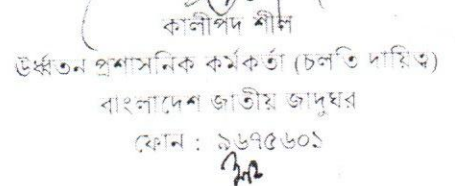 কালীপদ শীল
উর্ধ্বতন প্রশাসনিক কর্মকর্তা (চলতি দায়িত্ব)
বাংলাদেশ জাতীয় জাদুঘর
ফোন : ৯৬৭৫৬০১